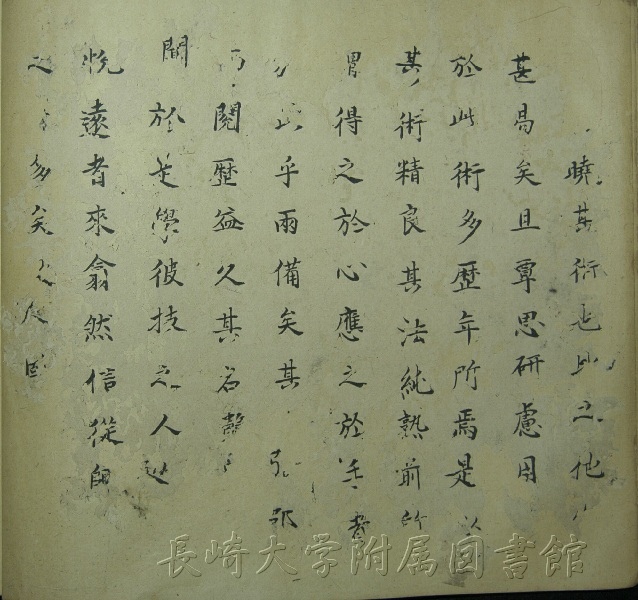 曉其術也此之他
甚高矣且覃思研慮用
於此術多歷年所焉是以
其術精良其法純熟前所
謂得之於心應之於手者
於此乎兩備矣其
閱歷益久其名聲
聞於是學彼技之人近
悅遠者來翕然信從
之多矣
長崎大学附属図書館